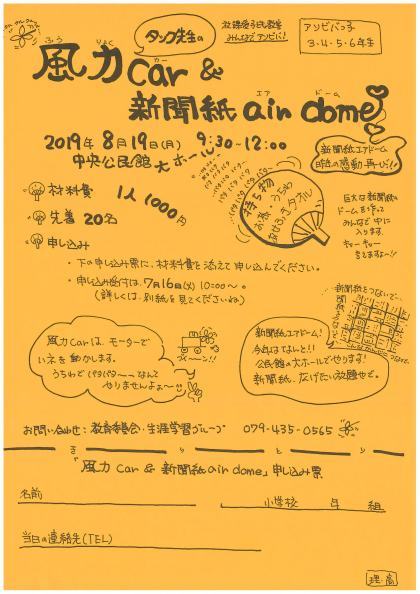 タンク先生の
放課後子ども教室
みんなでアソビバ!
アソビバっ子
3・4・5・6年生
風力car &
ふう りょく カー
新聞紙 air dome
エア ドーム
2019年8月19日(月) 9:30~12:00
中央公民館 大ホール
新聞紙エアドーム
昨年の感動再び!!
材料費 1人1000円
先着 20名
持ち物
お茶・うちわ
あせふきタオル
巨大な新聞紙の
ドームを作って
みんなで中に
入ります。
キャーキャー
言えますよー!!
申し込み
・下の申し込み票に、材料費を添えて申し込んでください。
・申し込み受付は、7月16日(火)10:00~。
(詳しくは、別紙を見てくださいね)
新聞紙をつないで…
風力carは、モーターで
いネを動かします。
うちわでパタパタ~~なんて
やりませんよぉ~
新聞紙エアドーム!
今年はなんと!!
公民館の大ホールでやります!
新聞紙、広げたい放題ぜよ。
お問い合わせ:教育委員会・生涯学習グループ 079-435-0565
き り と り
「風力car & 新聞紙air dome」申し込み票
名前
小学校 年 組
当日の連絡先(TEL)
理・高